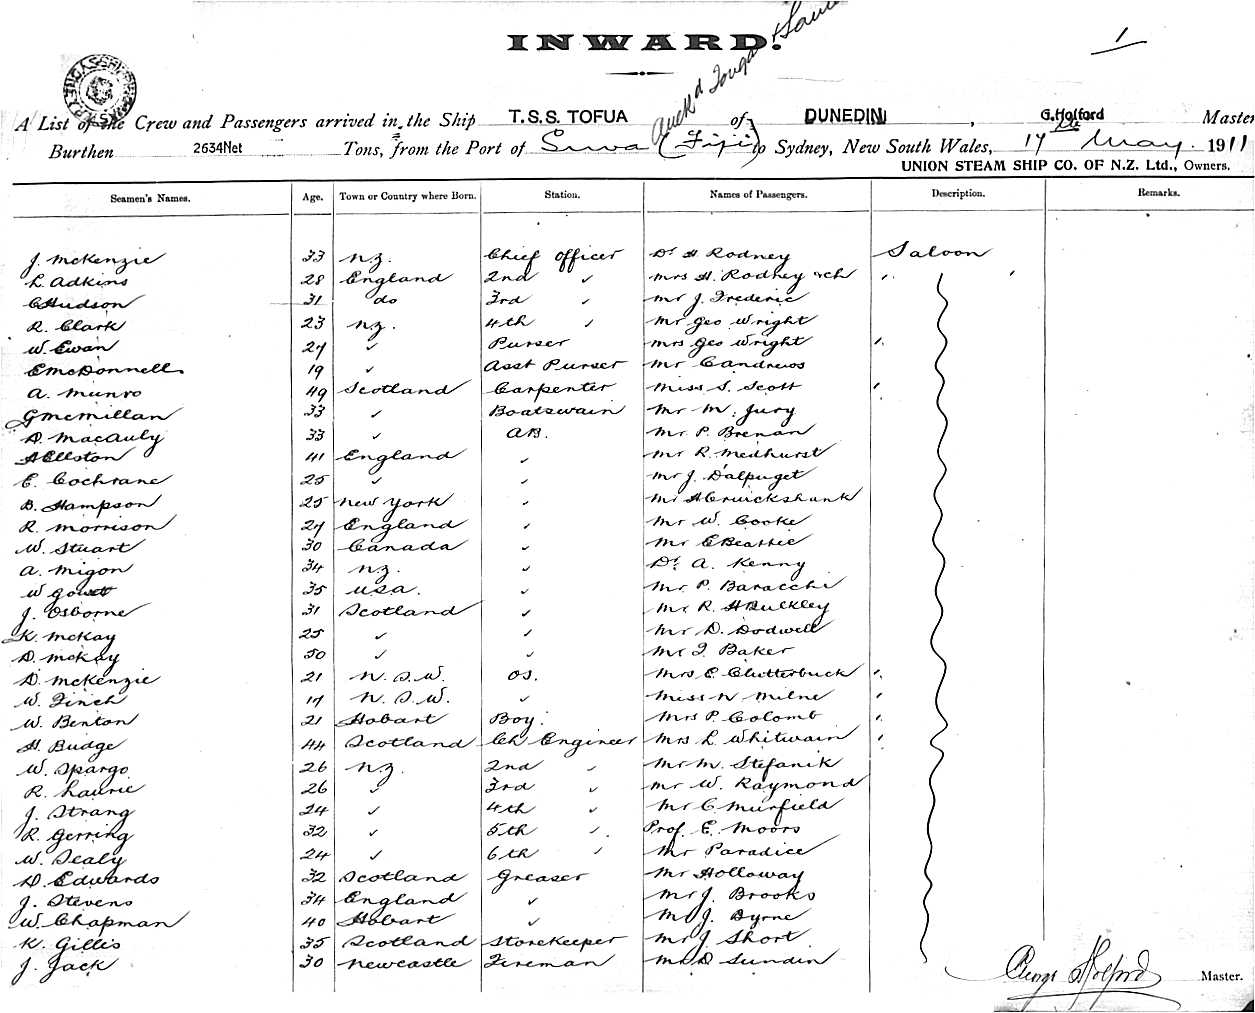 INWARD.
1
Auckd Tonga &
A List of the Crew and Passengers arrived in the Ship T.S.S. TOFUA of DUNEDIN, G.Holford Master
Burthen 2634Net Tons, from the Port of Suva (Fiji) to Sydney, New South Wales, 17th May. 1911
UNION STEAM SHIP CO. OF N.Z. Ltd., Owners.
Seamen's Names. Age. Town or Country where Born. Station. Names of Passengers. Description. Remarks.
J. McKenzie 33 N.Z. Chief Officer Dr H Rodney Saloon
L Adkins 28 England 2nd " Mrs H. Rodney "
C Hudson 31 do 3rd " Mr J. Frederic
R. Clark 23 N.Z. 4th " Mr Geo Wright
W. Ewan 27 " Purser Mrs Geo Wright "
E McDonnell 19 " Asst Purser Mr C Andrews
A. Munro 49 Scotland Carpenter Miss S. Scott "
G McMillan 33 " Boatswain Mr M. Jury
D. MacAuly 33 " AB. Mr P. Brenan
A Ellston 41 England " Mr R. Medhurst
E. Cochrane 25 " " Mr J. D'alpuget
B. Hampson 25 New York " Mr A Cruickshank
R. Morrison 27 England " Mr W. Cooke
W. Stuart 30 Canada " Mr E Beattie
A. Migon 34 N.Z. " Dr. A. Kenny
W 35 USA. " Mr P. Baracchi
J. Osborne 31 Scotland " Mr R. H Bulkley
K. McKay 25 " " Mr D. Dodwell
D. McKay 50 " " Mr T Baker
D. McKenzie 21 N.S.W. OS. Mrs E Clutterbuck "
W. Finch 17 N.S.W. " Miss N Milne "
W. Benton 21 Hobart Boy. Mrs P. Colomb "
H. Budge 44 Scotland Ch Engineer Mrs L Whitwain "
W. Spargo 26 N.Z. 2nd " Mr M. Stefanik
R. Laurie 26 " 3rd " Mr W. Raymond
J. Strang 24 " 4th " Mr C Muirfield
R. Gerring 32 " 5th " Prof. E. Moors
W. Sealy 24 " 6th " Mr Paradice
D. Edwards 32 Scotland Greaser Mr Holloway
J. Stevens 34 England " Mr J. Brooks
W. Chapman 40 Hobart " Mr J. Byrne
K. Gillis 35 Scotland Storekeeper Mr J Short
J. Jack 30 Newcastle Fireman Mr D Sundin
Holford Master.